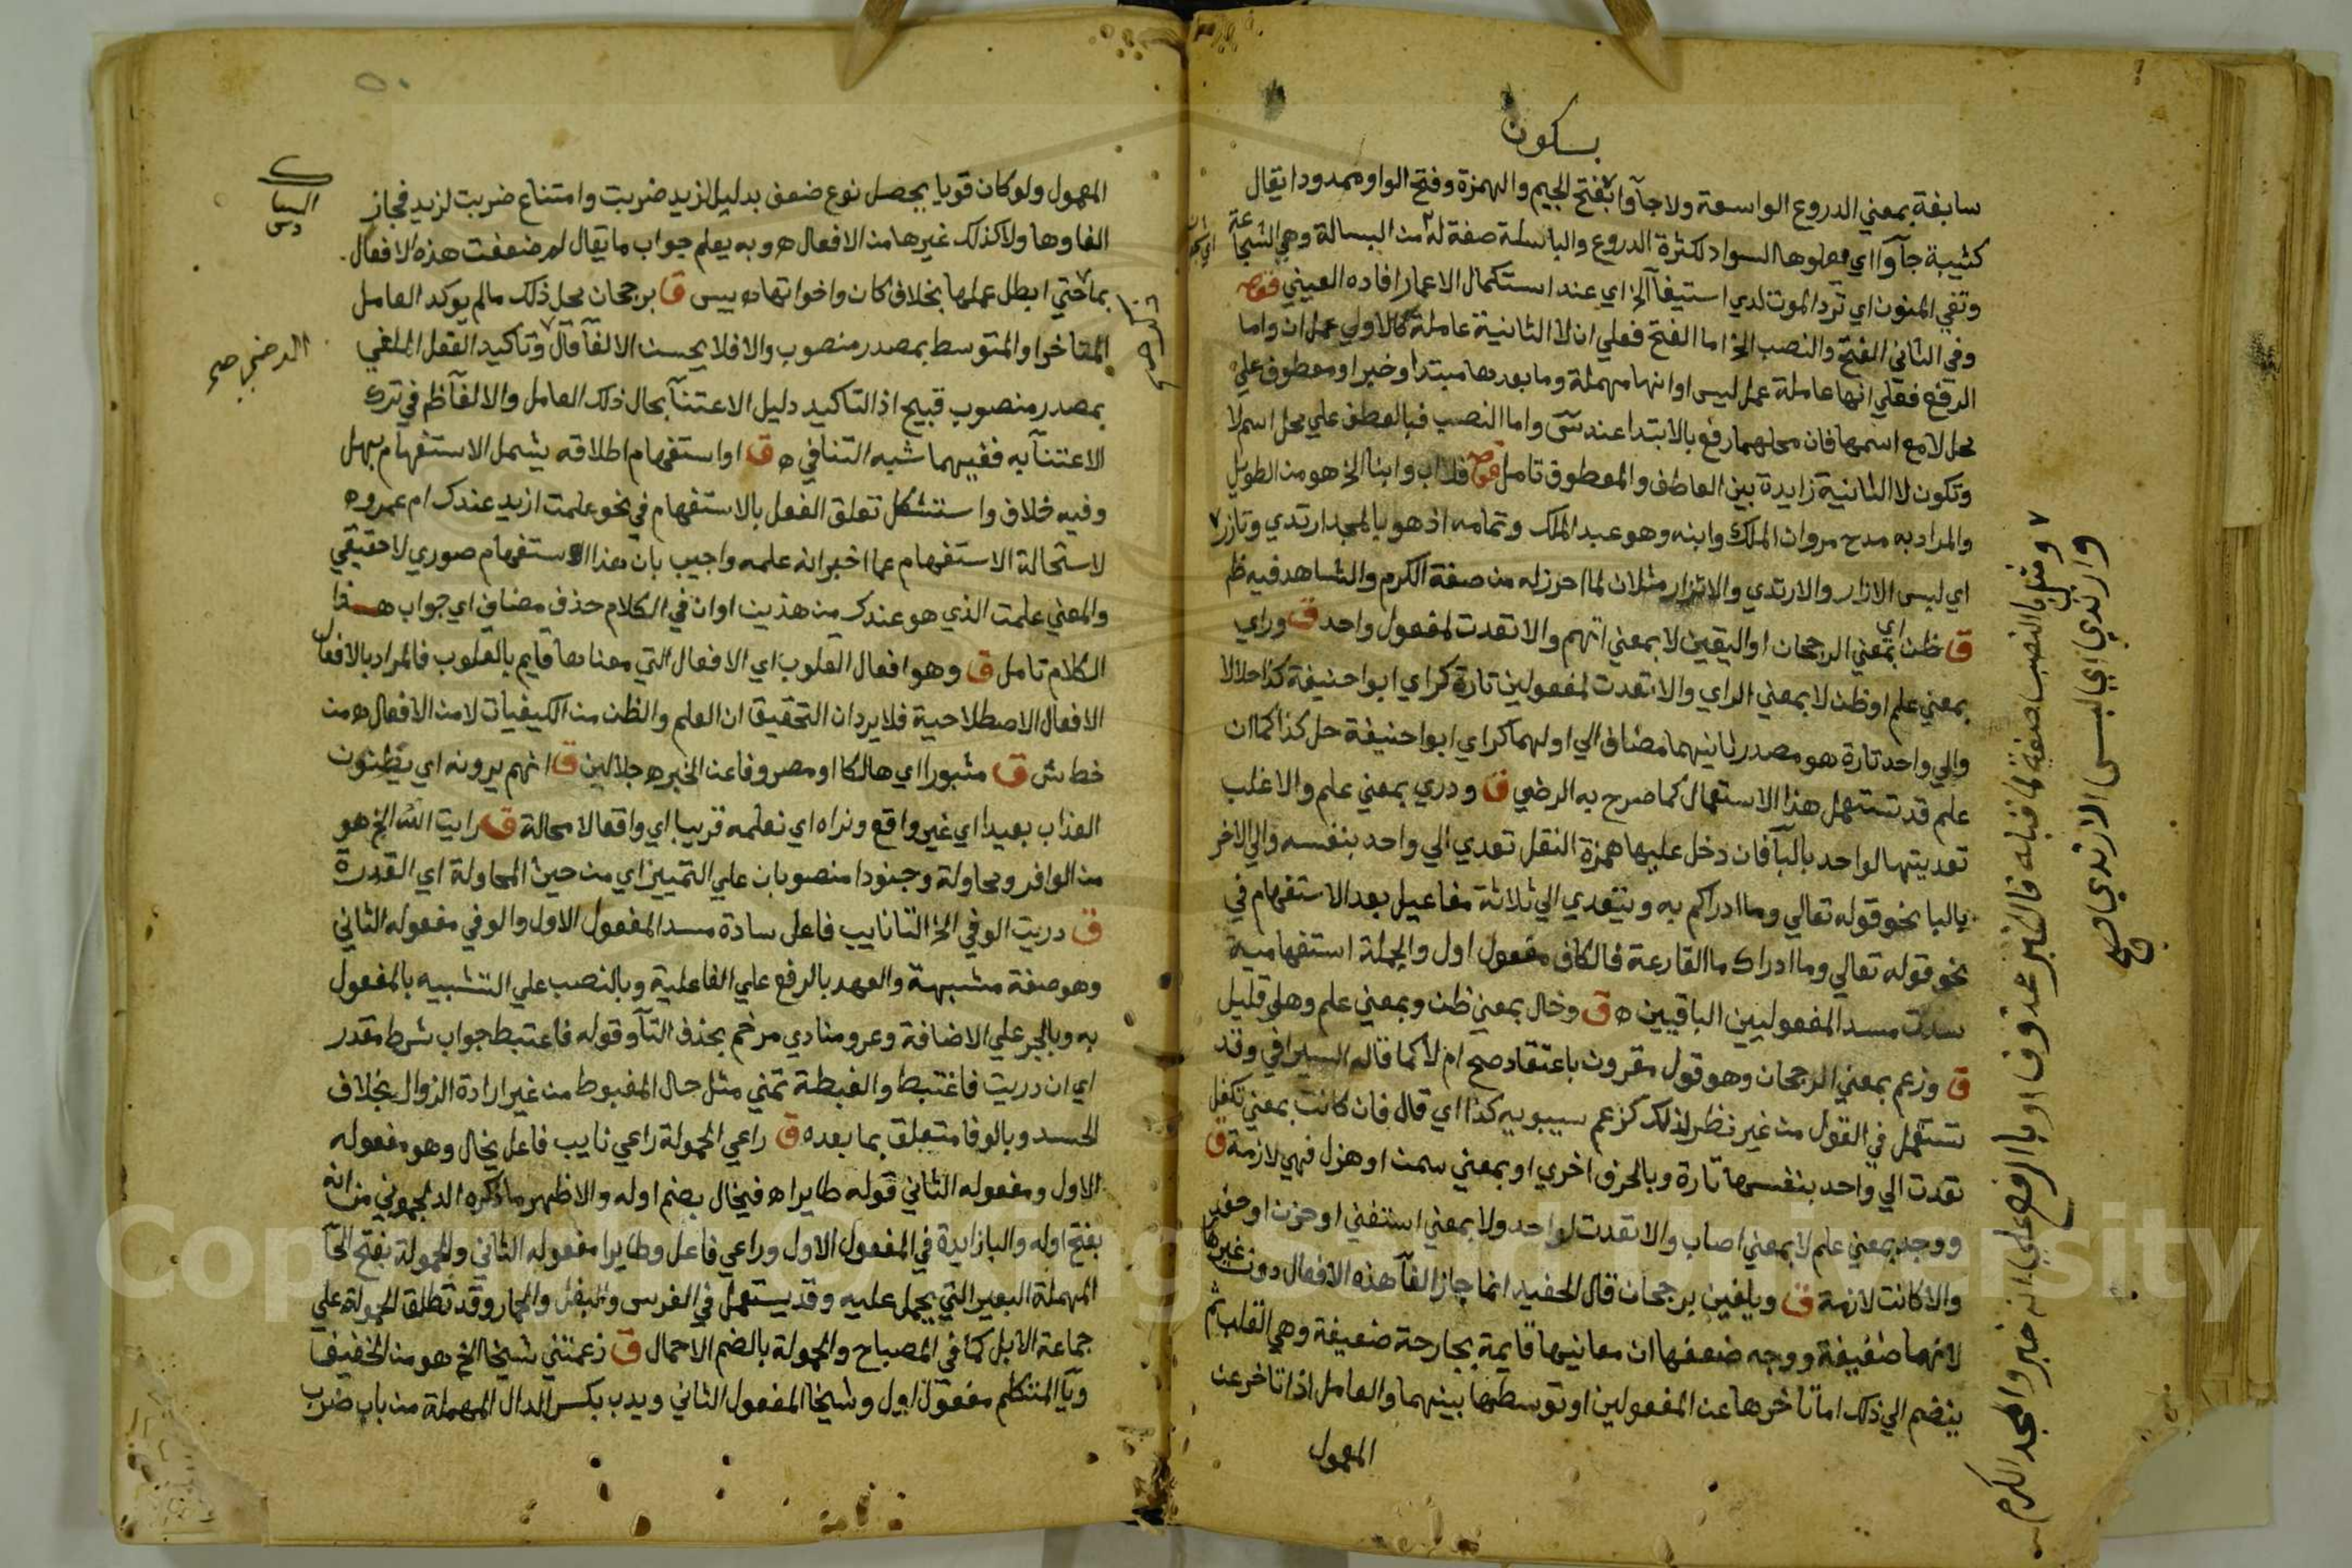 بسكون
سابغة بمعني الدروع الواسعة ولا جآوا بفتح الجيم والهمزة وفتح الواو ممدودا يقال
كثيبة جآوا اي يعلوها السواد لكثرة الدروع والباسلة صفة له من البسالة وهي الشجاعة
وتقي المنون اي ترد الموت لدي استيفآ الخ اي عند استكمال الاعمار افاده العيني قوله
وفي الثاني الفتح والنصب الخ اما الفتح فعلي ان لا الثانية عاملة كالاولي عمل ان واما
الرفع فعلي انها عاملة عمل ليس او انها مهملة وما بعدها مبتدا وخبر او معطوف علي
محل لا مع اسمها فان محلهما رفع بالابتدا عند س واما النصب فبالعطف علي محل اسم لا
وتكون لا الثانية زايدة بين العاطف والمعطوف تامل قوله فلا اب وابنا الخ هو من الطويل
والمراد به مدح مروان الملك وابنه وهو عبد الملك وتمامه اذ هو بالمجد ارتدي وتازر
اي لبس الازار والارتدي والاتزار مثلان لما احرز له من صفة الكرم والشاهد فيه ظ
ق ظن اي بمعني الرجحان او اليقين لا بمعني اتهم والا تعدت لمفعول واحد ق وراي
بمعني علم او ظن لا بمعني الراي والا تعدت لمفعولين تارة كراي ابوا حنيفة كذا حلالا
والي واحد تارة هو مصدر ثانيهما مضاف الي اولهما كراي ابوا حنيفة حل كذا كما ان
علم قد تستعمل هذا الاستعمال كما صرح به الرضي ق ودري بمعني علم والاغلب
تعديتها لواحد بالبآ فان دخل عليها همزة النقل تعدي الي واحد بنفسه والي الاخر
بالبا نحو قوله تعالي وما ادراكم به ويتعدي الي ثلاثة مفاعيل بعد الاستفهام في
نحو قوله تعالي وما ادراك ما القارعة فالكاف مفعول اول والجملة استفهامية
سدت مسد المفعوليين الباقيين ه ق وخال بمعني ظن وبمعني علم وهلي قليل
ق وزعم بمعني الرجحان وهو قول مقرون باعتقاد صح ام لا كما قاله السيرافي وقد
تستعمل في القول من غير نظر لذلك كزعم سيبويه كذا اي قال فان كانت بمعني تكفل
تعدت الي واحد بنفسها تارة وبالحرف اخري او بمعني سمن او هزل فهي لازمة ق
ووجد بمعني علم لا بمعني اصاب والا تعدت لواحد ولا بمعني استغني او حزن او حقد
والا كانت لازمة ق ويلغين برجحان قال الحفيد انما جاز الغآ هذه الافعال دون غيرها
لانها ضعيفة ووجه ضعفها ان معانيها قايمة بجارحة ضعيفة وهي القلب ثم
ينضم الي ذلك اما تاخرها عن المفعولين او توسطها بينهما والعامل اذا تاخر عن
المعمول
ومثل بالنصب صفة لما قبله فالخبر محذوف او بالرفع علي انه خبر والمجد الكرم
وارتدي اي لبس الارتدي
المعمول ولو كان قويا يحصل نوع ضعف بدليل لزيد ضربت وامتناع ضربت لزيد فجاز
الغاوها ولا كذلك غيرها من الافعال ه وبه يعلم جواب ما يقال لم ضعفت هذه الافعال
بما حتي ابطل عملها بخلاف كان واخواتها ه يس ق برجحان محل ذلك مالم يوكد العامل
المتاخر او المتوسط بمصدر منصوب والا فلا يحسن الالغآ قال وتاكيد الفعل الملغي
الرضي صح
بمصدر منصوب قبيح اذ التاكيد دليل الاعتنآ بحال ذلك العامل والالغآ ظ في ترك
الاعتنآ به ففيهما شبه التنافي ه ق او استفهام اطلاقه يشمل الاستفهام بهل
وفيه خلاف واستشكل تعلق الفعل بالاستفهام في نحو علمت ازيد عندك ام عمرو ه
لاستحالة الاستفهام عما اخبر انه علمه واجيب بان هذا الاستفهام صوري لا حقيقي
والمعني علمت الذي هو عندك من هذين او ان في الكلام حذف مضاف اي جواب هذا
الكلام تامل ق وهو افعال القلوب اي الافعال التي معناها قايم بالقلوب فالمراد بالافعال
الافعال الاصطلاحية فلا يرد ان التحقيق ان العلم والظن من الكيفيات لا من الافعال ه من
خط ش ق مثبورا اي هالكا او مصروفا عن الخير ه جلالين ق انهم يرونه اي يظنون
العذاب بعيدا اي غير واقع ونراه اي نعلمه قريبا اي واقعا لا محالة ق رايت الله الخ هو
من الوافر ومحاولة وجنودا منصوبان علي التمييز اي من حيث المحاولة اي القدرة
ق دريت الوفي الخ التا نايب فاعل سادة مسد المفعول الاول والوفي مفعوله الثاني
وهو صفة مشبهة والعهد بالرفع علي الفاعلية وبالنصب علي التشبيه بالمفعول
به وبالجر علي الاضافة وعرو منادي مرخم بحذف التآ وقوله فاغتبط جواب شرط مقدر
اي ان دريت فاغتبط والغبطة تمني مثل حال المغبوط من غير ارادة الزوال بخلاف
الحسد وبالوفا متعلق بما بعده ق راعي الحمولة راعي نايب فاعل يخال وهو مفعوله
الاول ومفعوله الثاني قوله طايرا ه فيخال بضم اوله والاظهر ما ذكره الدلجموني من انه
بفتح اوله والبا زايدة في المفعول الاول وراعي فاعل وطايرا مفعوله الثاني والحمولة بفتح الحآ
المهملة البعير التي يحمل عليه وقد يستعمل في الفرس والبغل والحمار وقد تطلق الحمولة علي
جماعة الابل كما في المصباح والحمولة بالضم الاحمال ق زعمتني شيخا الخ هو من الخفيف
ويآ المتكلم مفعول اول وشيخا المفعول الثاني ويدب بكسر الدال المهملة من باب ضرب